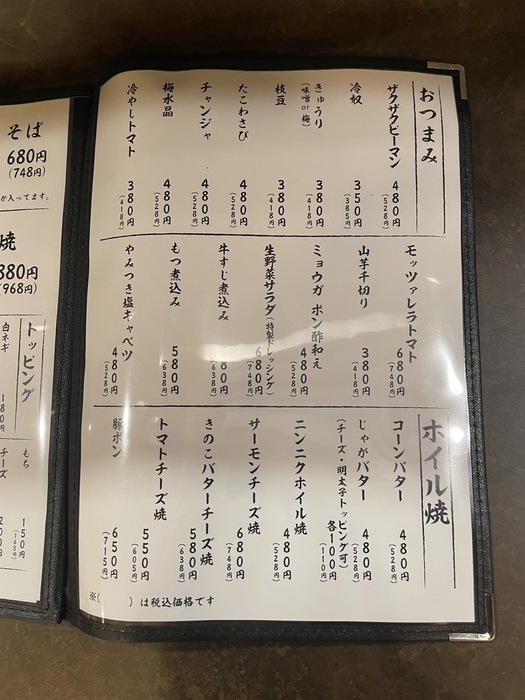 おつまみ
ザクザクピーマン 480円
(528円)
冷奴 350円
(385円)
きゅうり 380円
(味噌or梅) (418円)
枝豆 380円
(418円)
たこわさび 480円
(528円)
チャンジャ 480円
(528円)
梅水晶 480円
(528円)
冷やしトマト 380円
(418円)
モッツァレラトマト 680円
(748円)
山芋千切り 380円
(418円)
ミョウガ ポン酢和え 480円
(528円)
生野菜サラダ(特製ドレッシング) 680円
(748円)
牛すじ煮込み 580円
(638円)
もつ煮込み 580円
(638円)
やみつき塩キャベツ 480円
(528円)
ホイル焼
コーンバター 480円
(528円)
じゃがバター 480円
(528円)
(チーズ・明太子トッピング可) 各100円
(110円)
ニンニクホイル焼 480円
(528円)
サーモンチーズ焼 680円
(748円)
きのこバターチーズ焼 580円
(638円)
トマトチーズ焼 550円
(605円)
豚ポン 650円
(715円)
※( )は税込価格です
そば
680円
(748円)
が入ってます。
焼
880円
(968円)
トッピング
白ネギ 180円
もち 150円
(165円)
チーズ